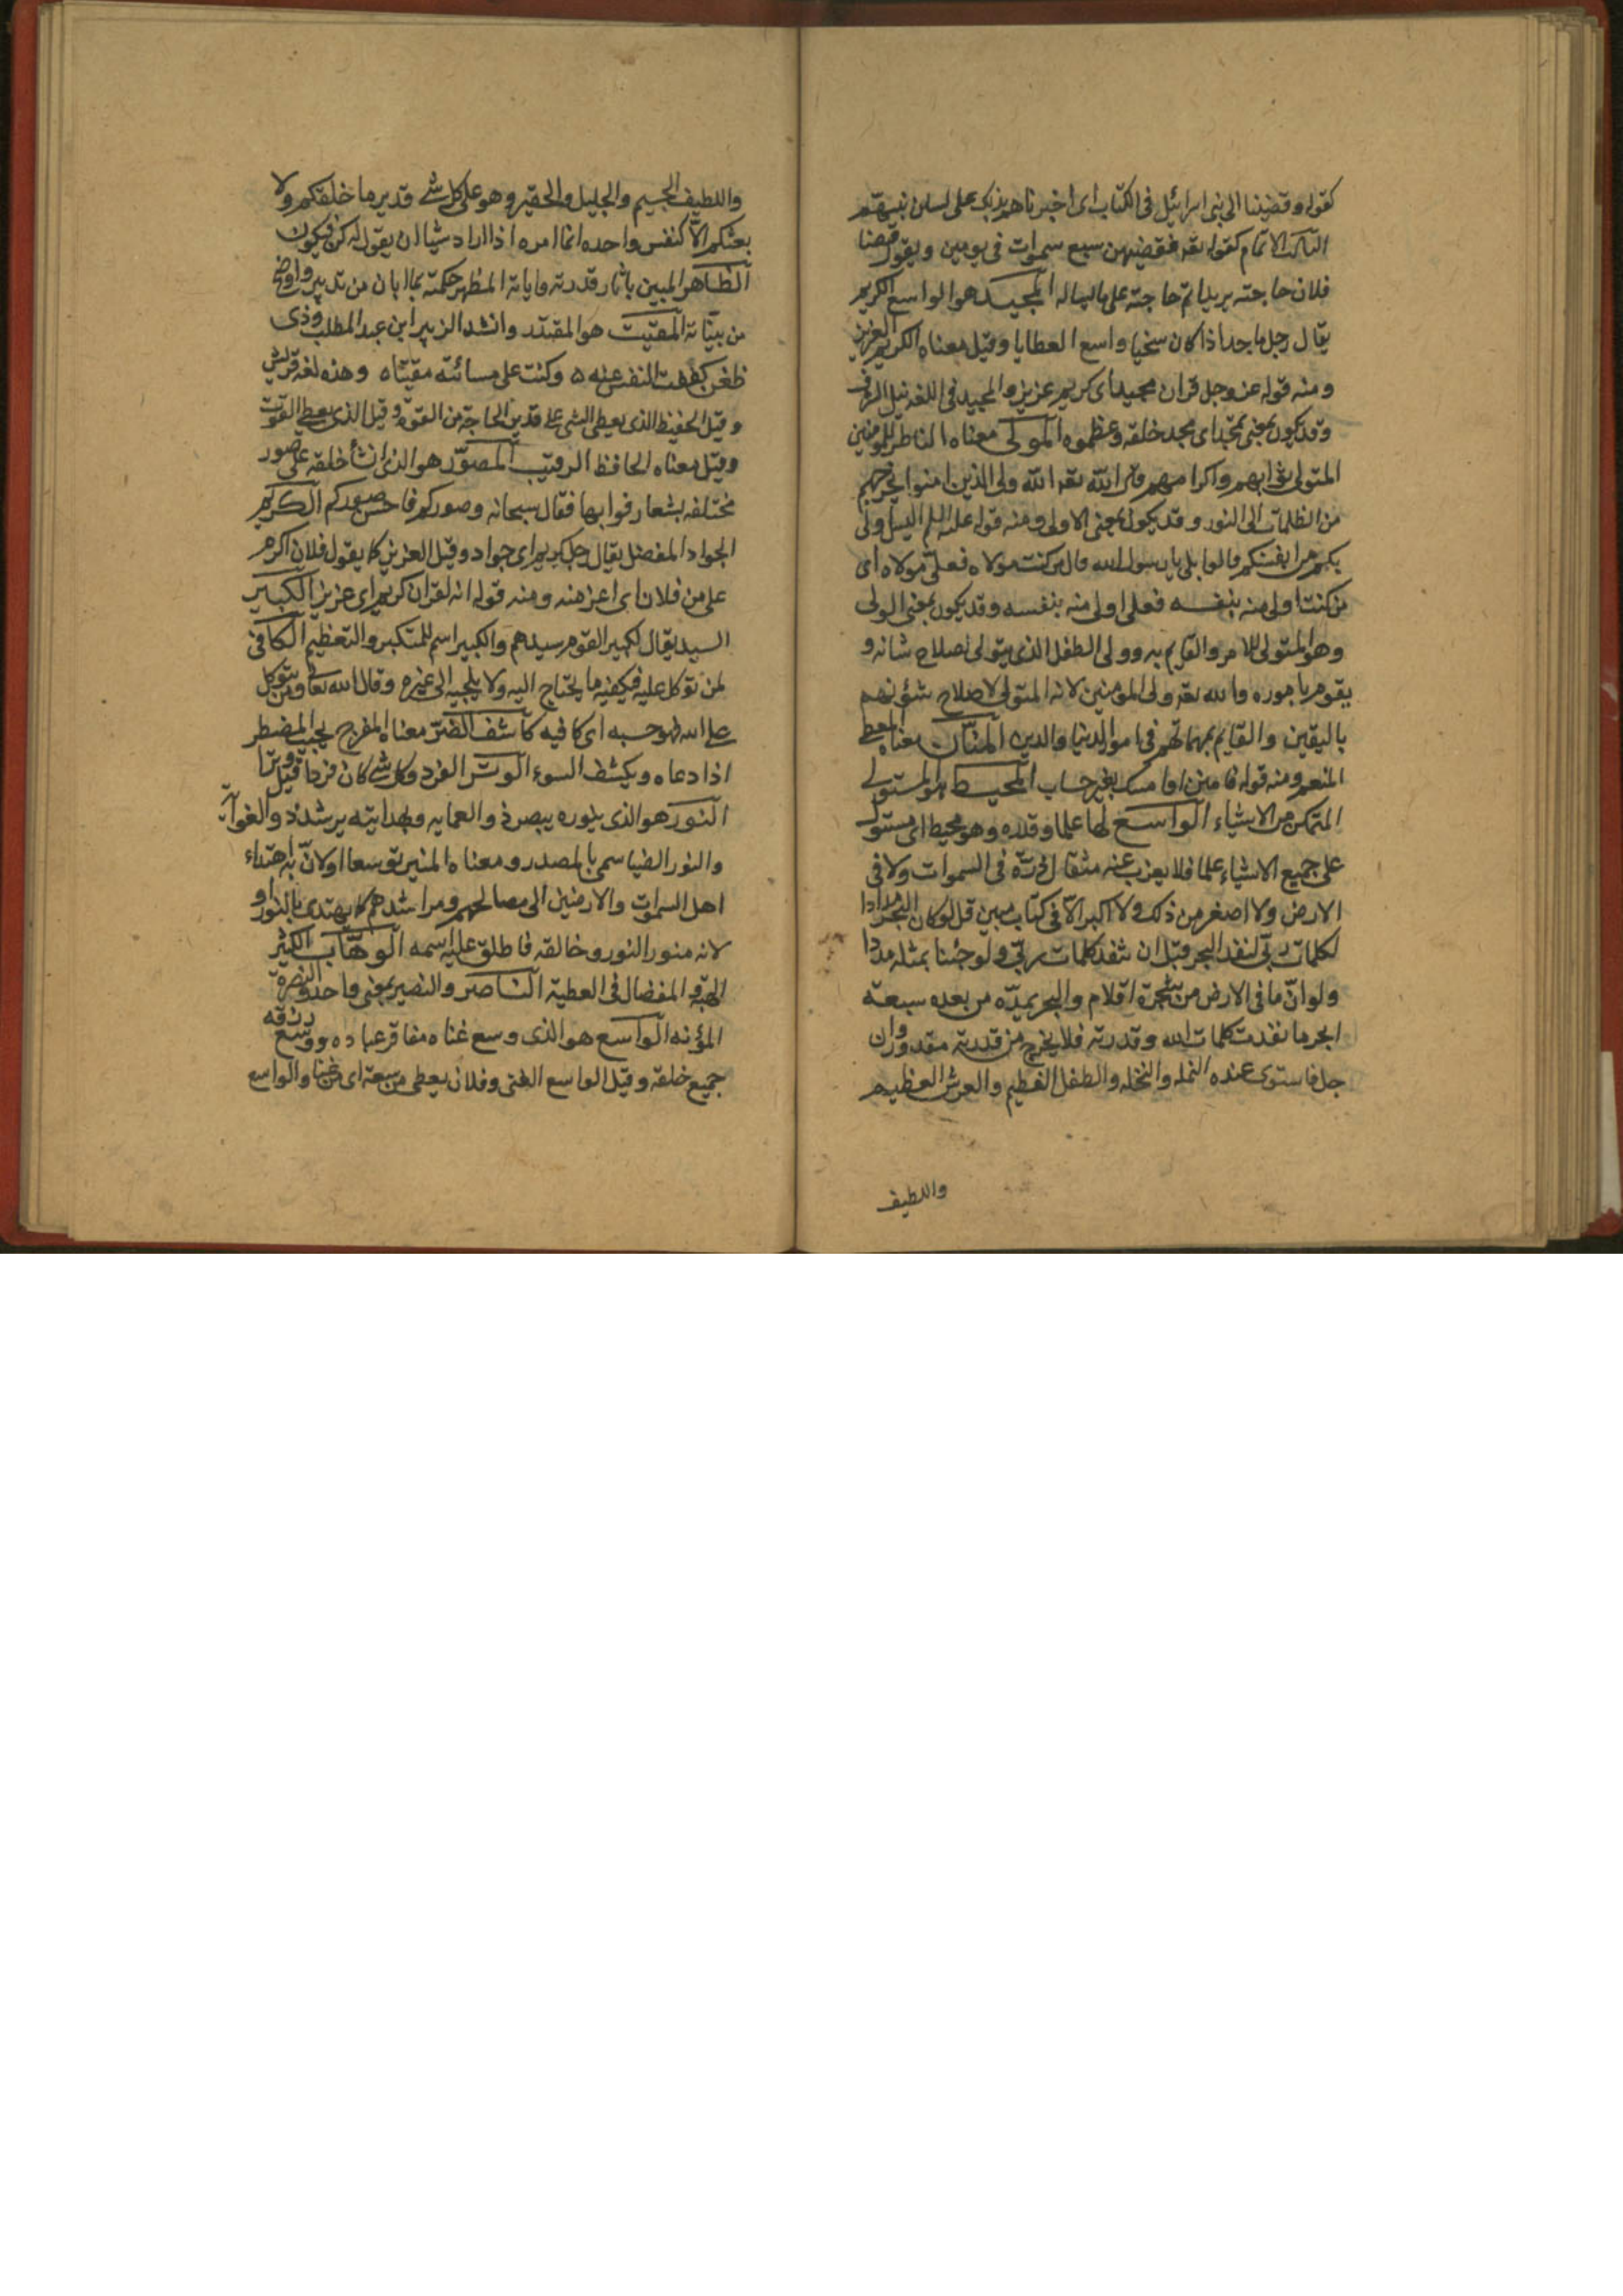 كقوله وقضينا الى بنى اسرائيل فى الكتاب اى اخبرناهم بذلك على لسان نبيهم
الثالث الاتمام كقوله تعه فقضيهن سبع سموات فى يومين ويقول قضا
فلان حاجته يريد اتم حاجته على ما ساله المجيد هو الواسع الكريم
يقال رجل ماجد اذا كان سخيا واسع العطايا وقيل معناه الكريم العزيز
ومنه قوله عز وجل قران مجيد اى كريم عزيز والمجيد فى اللغه نيل الشرف
وقد يكون بمعنى ممجد اى مجد خلقه وعظموه المولى معناه الناظر للمومنين
المتولى ثوابهم واكرامهم قال الله تعه الله ولى الذين امنوا يخرجهم
من الظلمات الى النور وقد يكون بمعنى الاولى ومنه قوله عليه السلم اليس اولى
بكم من انفسكم قالوا بلى يارسول الله قال من كنت مولاه فعلى مولاه اى
من كنت اولى منه بنفسه فعلى اولى منه بنفسه وقد يكون بمعنى الولى
وهو المتولى للامر والقايم به وولى الطفل الذى يتولى اصلاح شانه و
يقوم باموره والله تعه ولى المؤمنين لانه المتولى لاصلاح شؤنهم
باليقين والقايم بمهماتهم فى امور الدنيا والدين المنان معناه المعطى
المنعم ومنه قوله فامنن او امسك بغير حساب المحيط هو المستولى
المتمكن من الاشياء الواسع لها علما وقدره وهو محيط اى مستول
على جميع الاشياء علما فلا يعزب عنه مثقال ذرة فى السموات ولا فى
الارض ولا اصغر من ذلك ولا اكبر الا فى كتاب مبين قل لو كان البحر مدادا
لكلمات ربى لنفد البحر قبل ان تنفد كلمات ربى ولو جئنا بمثله مددا
ولو ان ما فى الارض من شجرة اقلام والبحر يمده من بعده سبعة
ابحر ما نفدت كلمات الله وقدرته فلا يخرج من قدرته مقدور وان
جل فاستوى عنده النمله والنخله والطفل الفطيم والعرش العظيم
واللطيف
واللطيف الجسيم والجليل والحقير وهو على كل شئ قدير ما خلقكم ولا
بعثكم الا كنفس واحده انما امره اذا اراد شيا ان يقول له كن فيكون
الظاهر المبين باثار قدرته واياته المظهر حكمته بما ابان من تدبير واوضح
من بيناته المقيت هو المقتدر وانشد الزبير ابن عبد المطلب وذى
ظغن كففت النفس عنه ٥ وكنت على مسائته مقيتاه وهذه لغه قريش
وقيل الحفيظ الذى يعطى الشى على قدر الحاجة من القوه وقيل الذى يعطى القوت
وقيل معناه الحافظ الرقيب المصور هو الذى انشأ خلقه على صور
مختلفه بشعارفوا بها فقال سبحانه وصوركم فاحسن صوركم الكريم
الجواد المفضل يقال رجل كريم اى جواد وقيل العزيز كما يقول فلان اكرم
على من فلان اى اعز منه ومنه قوله انه لقران كريم اى عزيز الكبير
السيد يقال لكبير القوم سيدهم والكبير اسم للتكبر والتعظيم الكافى
لمن توكل عليه فيكفيه ما يحتاج اليه ولا يلجيه الى غيره وقال الله تعالى ومن يتوكل
على الله فهو حسبه اى كافيه كاشف الضر معناه المفرج يجيب المضطر
اذا دعاه ويكشف السوء الوتر الفرد وكل شئ كان فردا قيل وترا
النور هو الذى بنوره يبصر ذو العمايه وبهدايته يرشد ذو الغوايه
والنور الضيا سمى بالمصدر ومعناه المنير توسعا او لان به اهتداء
اهل السموات والارضين الى مصالحهم ومراشدهم كما يهتدى بالنور او
لانه منور النور وخالقه فاطلق عليه اسمه الوهاب الكثير
الهبة المفضال فى العطية الناصر والنصير بمعنى واحد والنصرة
المؤنه الواسع هو الذى وسع غناه مفاقر عباده ووسع رزقه
جميع خلقه وقيل الواسع الغنى وفلان يعطى من سعة اى من غنا والواسع